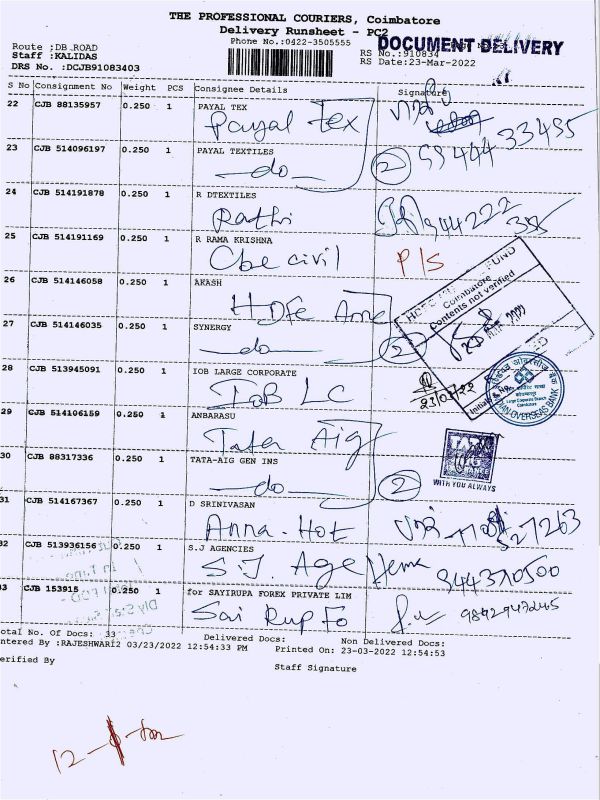 THE PROFESSIONAL COURIERS, Coimbatore
Delivery Runsheet - PC2
Phone No.:0422-3505555
DOCUMENT DELIVERY
Route :DB.ROAD
Staff :KALIDAS
DRS No. :DCJB91083403
RS No.:910834
RS Date:23-Mar-2022
S No Consignment No Weight PCS Consignee Details Signature
22 CJB 88135957 0.250 1 PAYAL TEX
Payal Tex
33435
23 CJB 514096197 0.250 1 PAYAL TEXTILES
-do- 2 99444
24 CJB 514191878 0.250 1 R DTEXTILES
Rathi 944222
25 CJB 514191169 0.250 1 R RAMA KRISHNA
Cbe civil P/S
26 CJB 514146058 0.250 1 AKASH
Coimbatore
Contents not verified
27 CJB 514146035 0.250 1 SYNERGY
-do- 2
28 CJB 513945091 0.250 1 IOB LARGE CORPORATE
IOB LC 23/03/22
INDIAN OVERSEAS BANK
29 CJB 514106159 0.250 1 ANBARASU
Tata Aig
TATA
30 CJB 88317336 0.250 1 TATA-AIG GEN INS
-do- 2
WITH YOU ALWAYS
31 CJB 514167367 0.250 1 D SRINIVASAN
Anna-Hot
32 CJB 513936156 0.250 1 S.J AGENCIES
S.J. Age Hema 944370500
33 CJB 153915 0.250 1 for SAYIRUPA FOREX PRIVATE LIM
Sai Rup Fo 9842947245
Total No. Of Docs: 33 Delivered Docs: Non Delivered Docs:
Entered By :RAJESHWARI2 03/23/2022 12:54:33 PM Printed On: 23-03-2022 12:54:53
Verified By Staff Signature